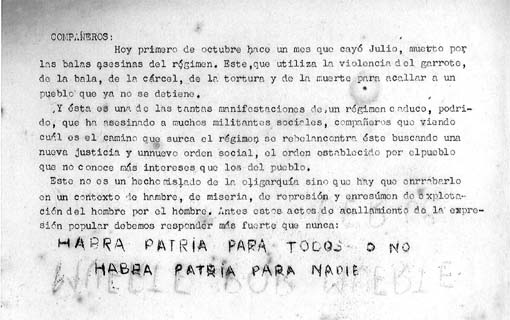 COMPAÑEROS:
Hoy primero de octubre hace un mes que cayó Julio, muerto por
las balas asesinas del régimen. Este,que utiliza la violencia del garrote,
de la bala, de la cárcel, de la tortura y de la muerte para acallar a un
pueblo que ya no se detiene.
Y ésta es una de las tantas manifestaciones de,un régimen caduco, podri-
do, que ha asesinado a muchos militantes sociales, compañeros que viendo
cuál es el camino que surca el régimen se rebelancontra éste buscando una
nueva justicia y unnuevo orden social, el orden establecido por elpueblo
que no conoce más intereses que los del pueblo.
Este no es un hechomislado de la oligarquía sino que hay que enrrabarlo
en un contexto de hambre, de miseria, de represión y enresúmen de explota-
ción del hombre por el hombre. Antes estos actos de acallamiento de la expre-
sión popular debemos responder más fuerte que nunca:
HABRA PATRIA PARA TODOS O NO
HABRA PATRIA PARA NADIE